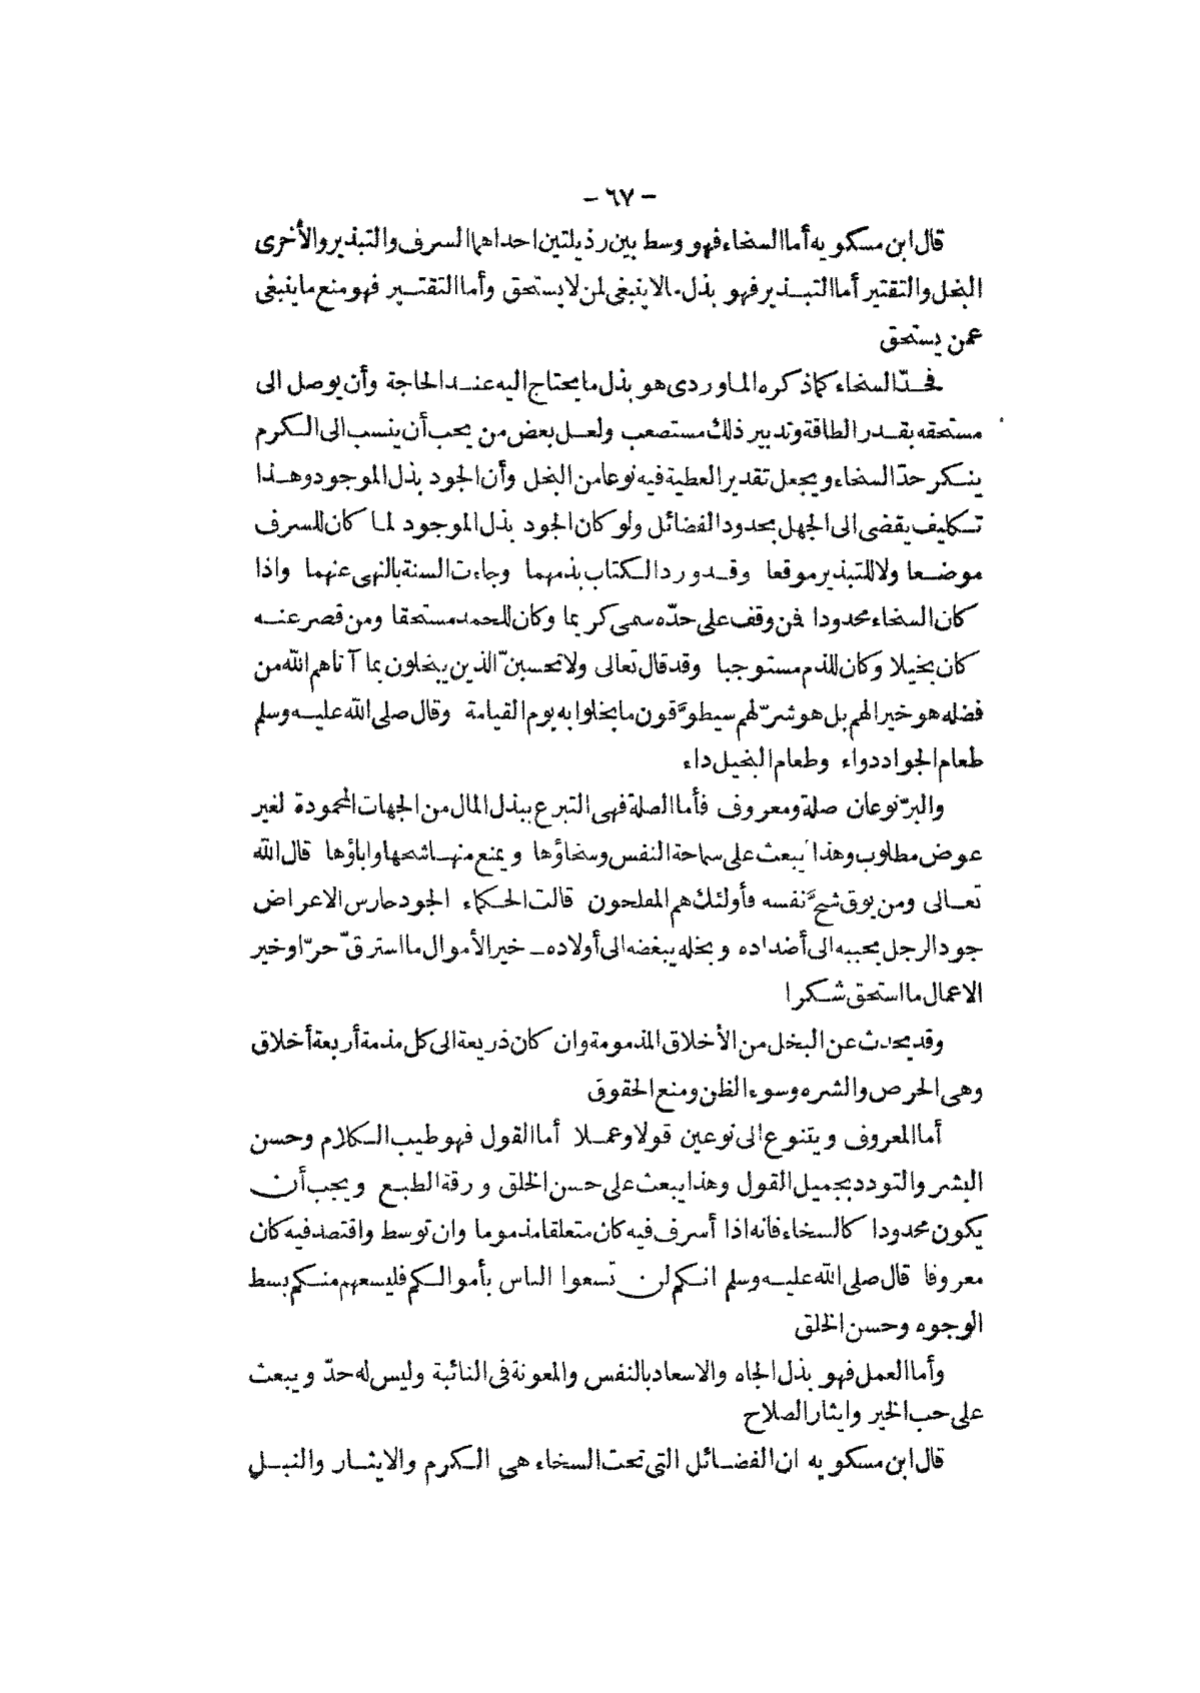 – ٦٧ –
قال ابن مسكويه أما السخاء فهو وسط بين رذيلتين احداهما السرف والتبذير والأخرى
البخل والتقتير أما التبذير فهو بذل مالا ينبغى لمن لا يستحق وأما التقتير فهو منع ما ينبغى
عمن يستحق
فحدّ السخاء كما ذكره الماوردى هو بذل ما يحتاج اليه عند الحاجة وأن يوصل الى
مستحقه بقدر الطاقة وتدبير ذلك مستصعب ولعل بعض من يحب أن ينسب الى الكرم
ينكر حدّ السخاء ويجعل تقدير العطية فيه نوعا من البخل وأن الجود بذل الموجود وهذا
تكليف يقضى الى الجهل بحدود الفضائل ولو كان الجود بذل الموجود لما كان للسرف
موضعا ولا للتبذير موقعا وقد ورد الكتاب بذمهما وجاءت السنة بالنهى عنهما واذا
كان السخاء محدودا فمن وقف على حدّه سمى كريما وكان للحمد مستحقا ومن قصر عنه
كان بخيلا وكان للذم مستوجبا وقد قال تعالى ولا تحسبنّ الذين يبخلون بما آتاهم الله من
فضله هو خيرا لهم بل هو شرّ لهم سيطوّقون ما بخلوا به يوم القيامة وقال صلى الله عليه وسلم
طعام الجواد دواء وطعام البخيل داء
والبرّ نوعان صلة ومعروف فأما الصلة فهى التبرع ببذل المال من الجهات المحمودة لغير
عوض مطلوب وهذا يبعث على سماحة النفس وسخاؤها ويمنع منها شحها واباؤها قال الله
تعالى ومن يوق شحّ نفسه فأولئك هم المفلحون قالت الحكماء الجود حارس الاعراض
جود الرجل يحببه الى أضداده وبخله يبغضه الى أولاده – خير الأموال ما استرقّ حرّا وخير
الاعمال ما استحق شكرا
وقد يحدث عن البخل من الأخلاق المذمومة وان كان ذريعة الى كل مذمة أربعة أخلاق
وهى الحرص والشره وسوء الظن ومنع الحقوق
أما المعروف ويتنوع الى نوعين قولا وعملا أما القول فهو طيب الكلام وحسن
البشر والتودد بجميل القول وهذا يبعث على حسن الخلق ورقة الطبع ويجب أن
يكون محدودا كالسخاء فانه اذا أسرف فيه كان متعلقا مذموما وان توسط واقتصد فيه كان
معروفا قال صلى الله عليه وسلم انكم لن تسعوا الناس بأموالكم فليسعهم منكم بسط
الوجوه وحسن الخلق
وأما العمل فهو بذل الجاه والاسعاد بالنفس والمعونة فى النائبة وليس له حدّ ويبعث
على حب الخير وايثار الصلاح
قال ابن مسكويه ان الفضائل التى تحت السخاء هى الكرم والايثار والنبل